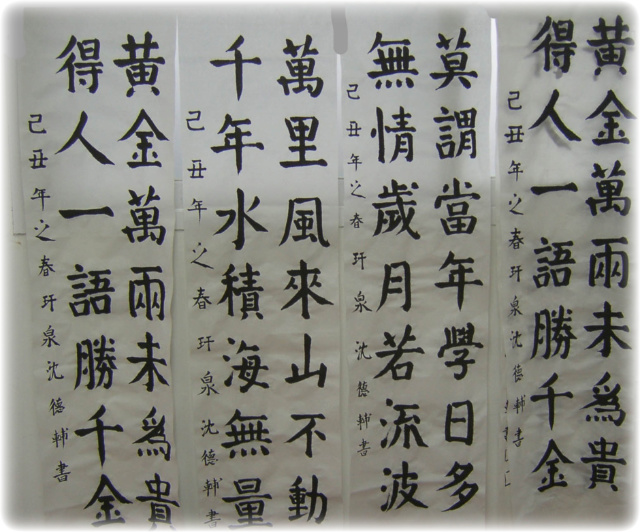 黃金萬兩未爲貴
得人一語勝千金
己丑年之春玕泉沈德輔書
莫謂當年學日多
無情歲月若流波
己丑年之春玕泉沈德輔書
萬里風來山不動
千年水積海無量
己丑年之春玕泉沈德輔書
黃金萬兩未爲貴
得人一語勝千金
己丑年之春玕泉沈德輔書